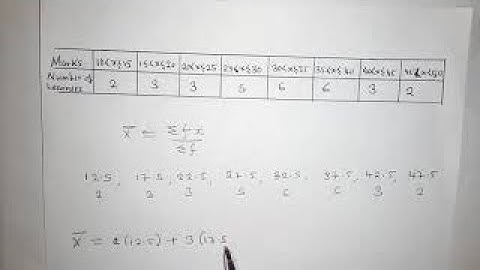 Marks 10<x≤15 15<x≤20 20<x≤25 25<x≤30 30<x≤35 35<x≤40 40<x≤45 45<x≤50
Number of 2 3 3 5 6 6 3 2
x̄ = Σfx
Σf
12.5, 17.5, 22.5, 27.5, 32.5, 37.5, 42.5, 47.5
2 3 3 5 6 6 3 2
x̄ = 2(12.5) + 3(17.5